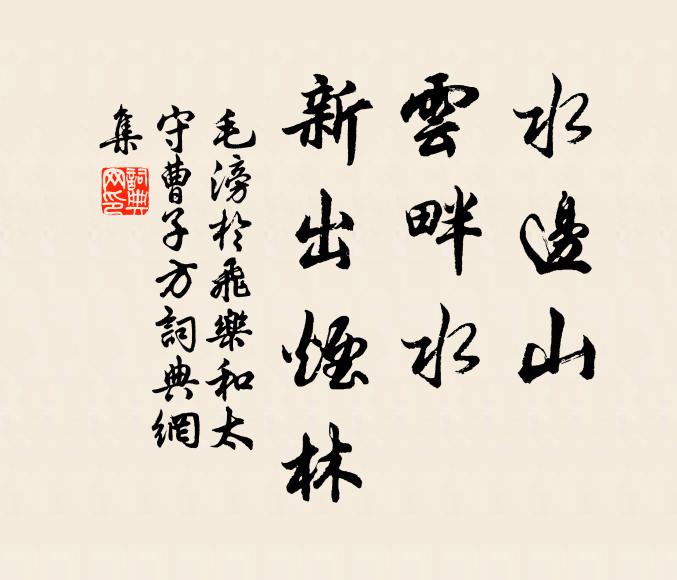 水邊山
雲畔水
新出煙林
毛滂於飛樂和太
守曹子方詞典網
集
詞典
网印